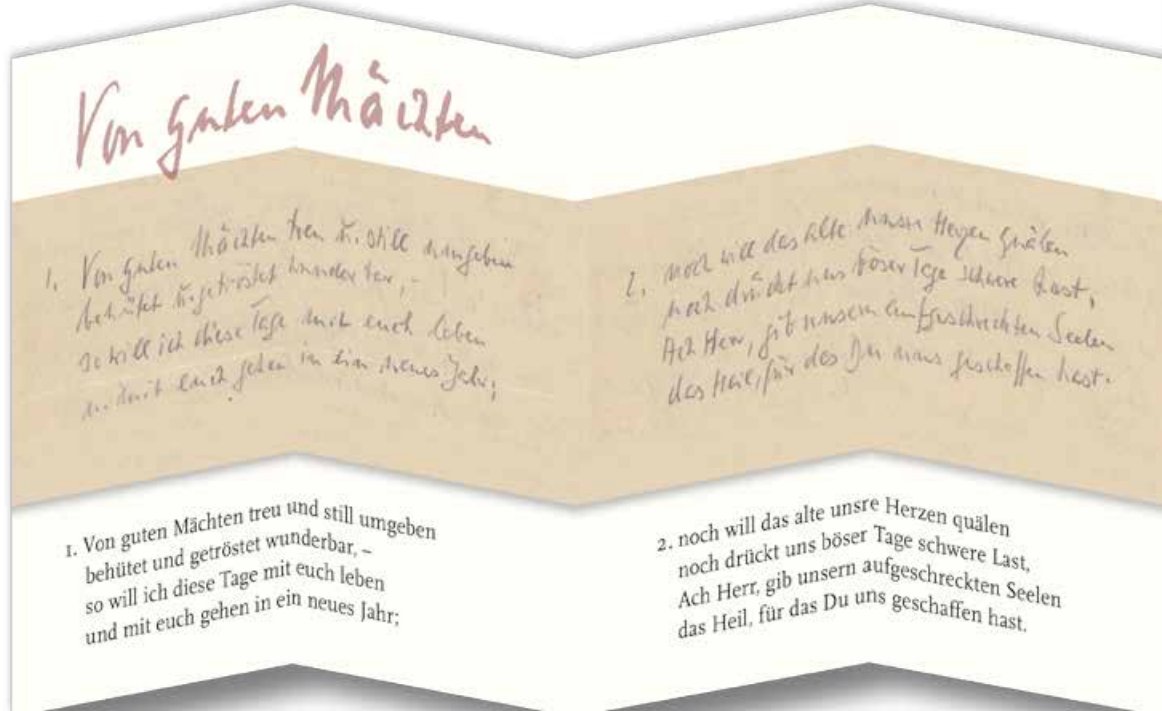 Von guten Mächten
1. Von guten Mächten treu u. still umgeben
behütet u. getröstet wunderbar, –
so will ich diese Tage mit euch leben
u. mit euch gehen in ein neues Jahr;
2. noch will das alte unsre Herzen quälen
noch drückt uns böser Tage schwere Last,
Ach Herr, gib unsern aufgeschreckten Seelen
das Heil, für das Du uns geschaffen hast.
1. Von guten Mächten treu und still umgeben
behütet und getröstet wunderbar, –
so will ich diese Tage mit euch leben
und mit euch gehen in ein neues Jahr;
2. noch will das alte unsre Herzen quälen
noch drückt uns böser Tage schwere Last,
Ach Herr, gib unsern aufgeschreckten Seelen
das Heil, für das Du uns geschaffen hast.